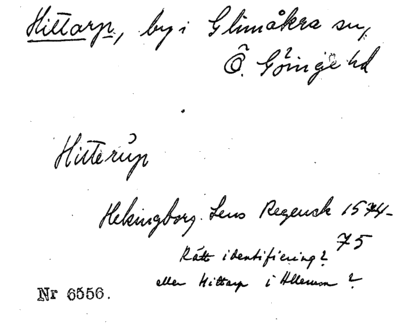 Hittarp, by i Glimåkra sn,
Ö. Göinge hd
Hitterup
Helsingborg. Lens Regensk 1574-
75
Rätt identifiering?
eller Hittarp i Allerum?
Nr 6556.